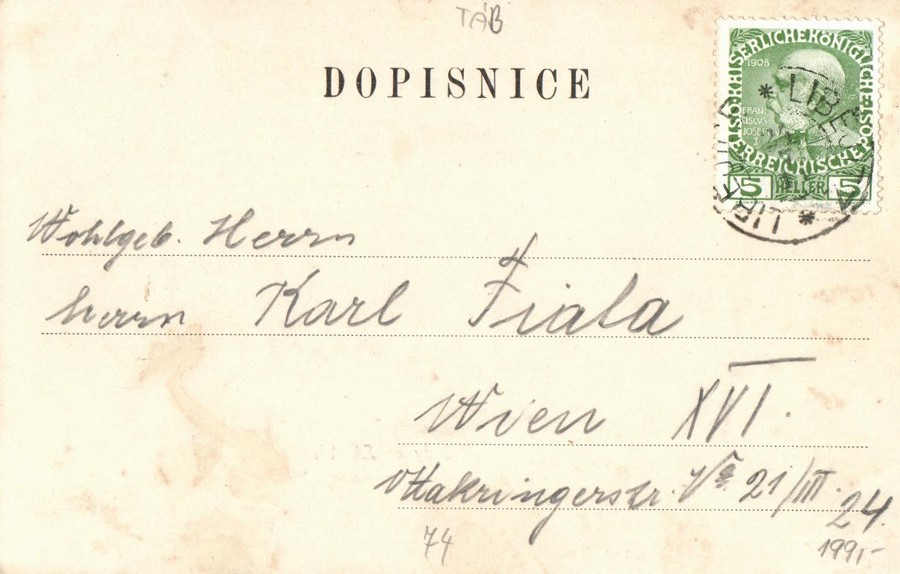 TÁB
DOPISNICE
KAISERLICHE KÖNIGLICHE ÖSTERREICHISCHE POST
1908
FRAN
CISCUS
JOSEPH
5 HELLER 5
Wohlgeb. Herrn
Herrn Karl Fiala
Wien XVI.
Ottakringerstr. No 21/III.
24.
74
199,-